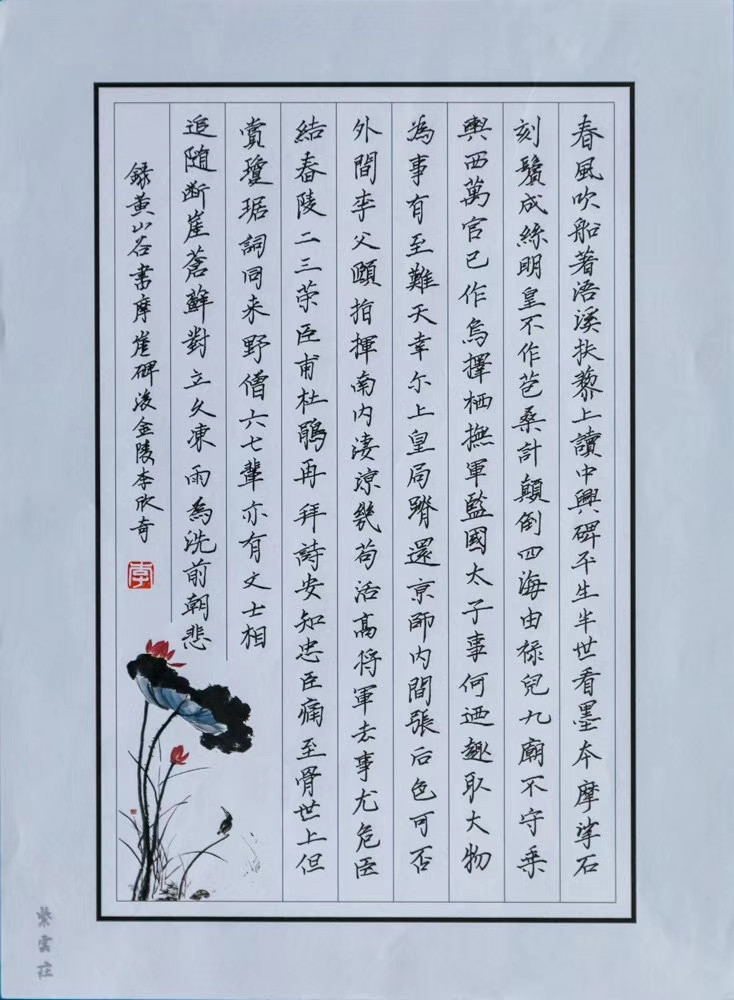 春風吹船著浯溪扶藜上讀中興碑平生半世看墨本摩挲石
刻鬢成絲明皇不作苞桑計顛倒四海由禄兒九廟不守乘
輿西萬官已作烏擇栖撫軍監國太子事何迺趣取大物
為事有至難天幸尔上皇局蹐還京師内間張后色可否
外間李父頤指揮南内淒涼幾苟活高将軍去事尤危臣
結舂陵二三荣臣甫杜鵑再拜詩安知忠臣痛至骨世上但
賞瓊琚詞同来野僧六七輩亦有文士相
追随断崖蒼蘚對立久凍雨為洗前朝悲
録黄山谷書摩崖碑後金陵李欣奇
李
紫雲莊